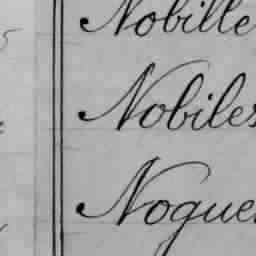 Nobille
Nobiles
Nogue